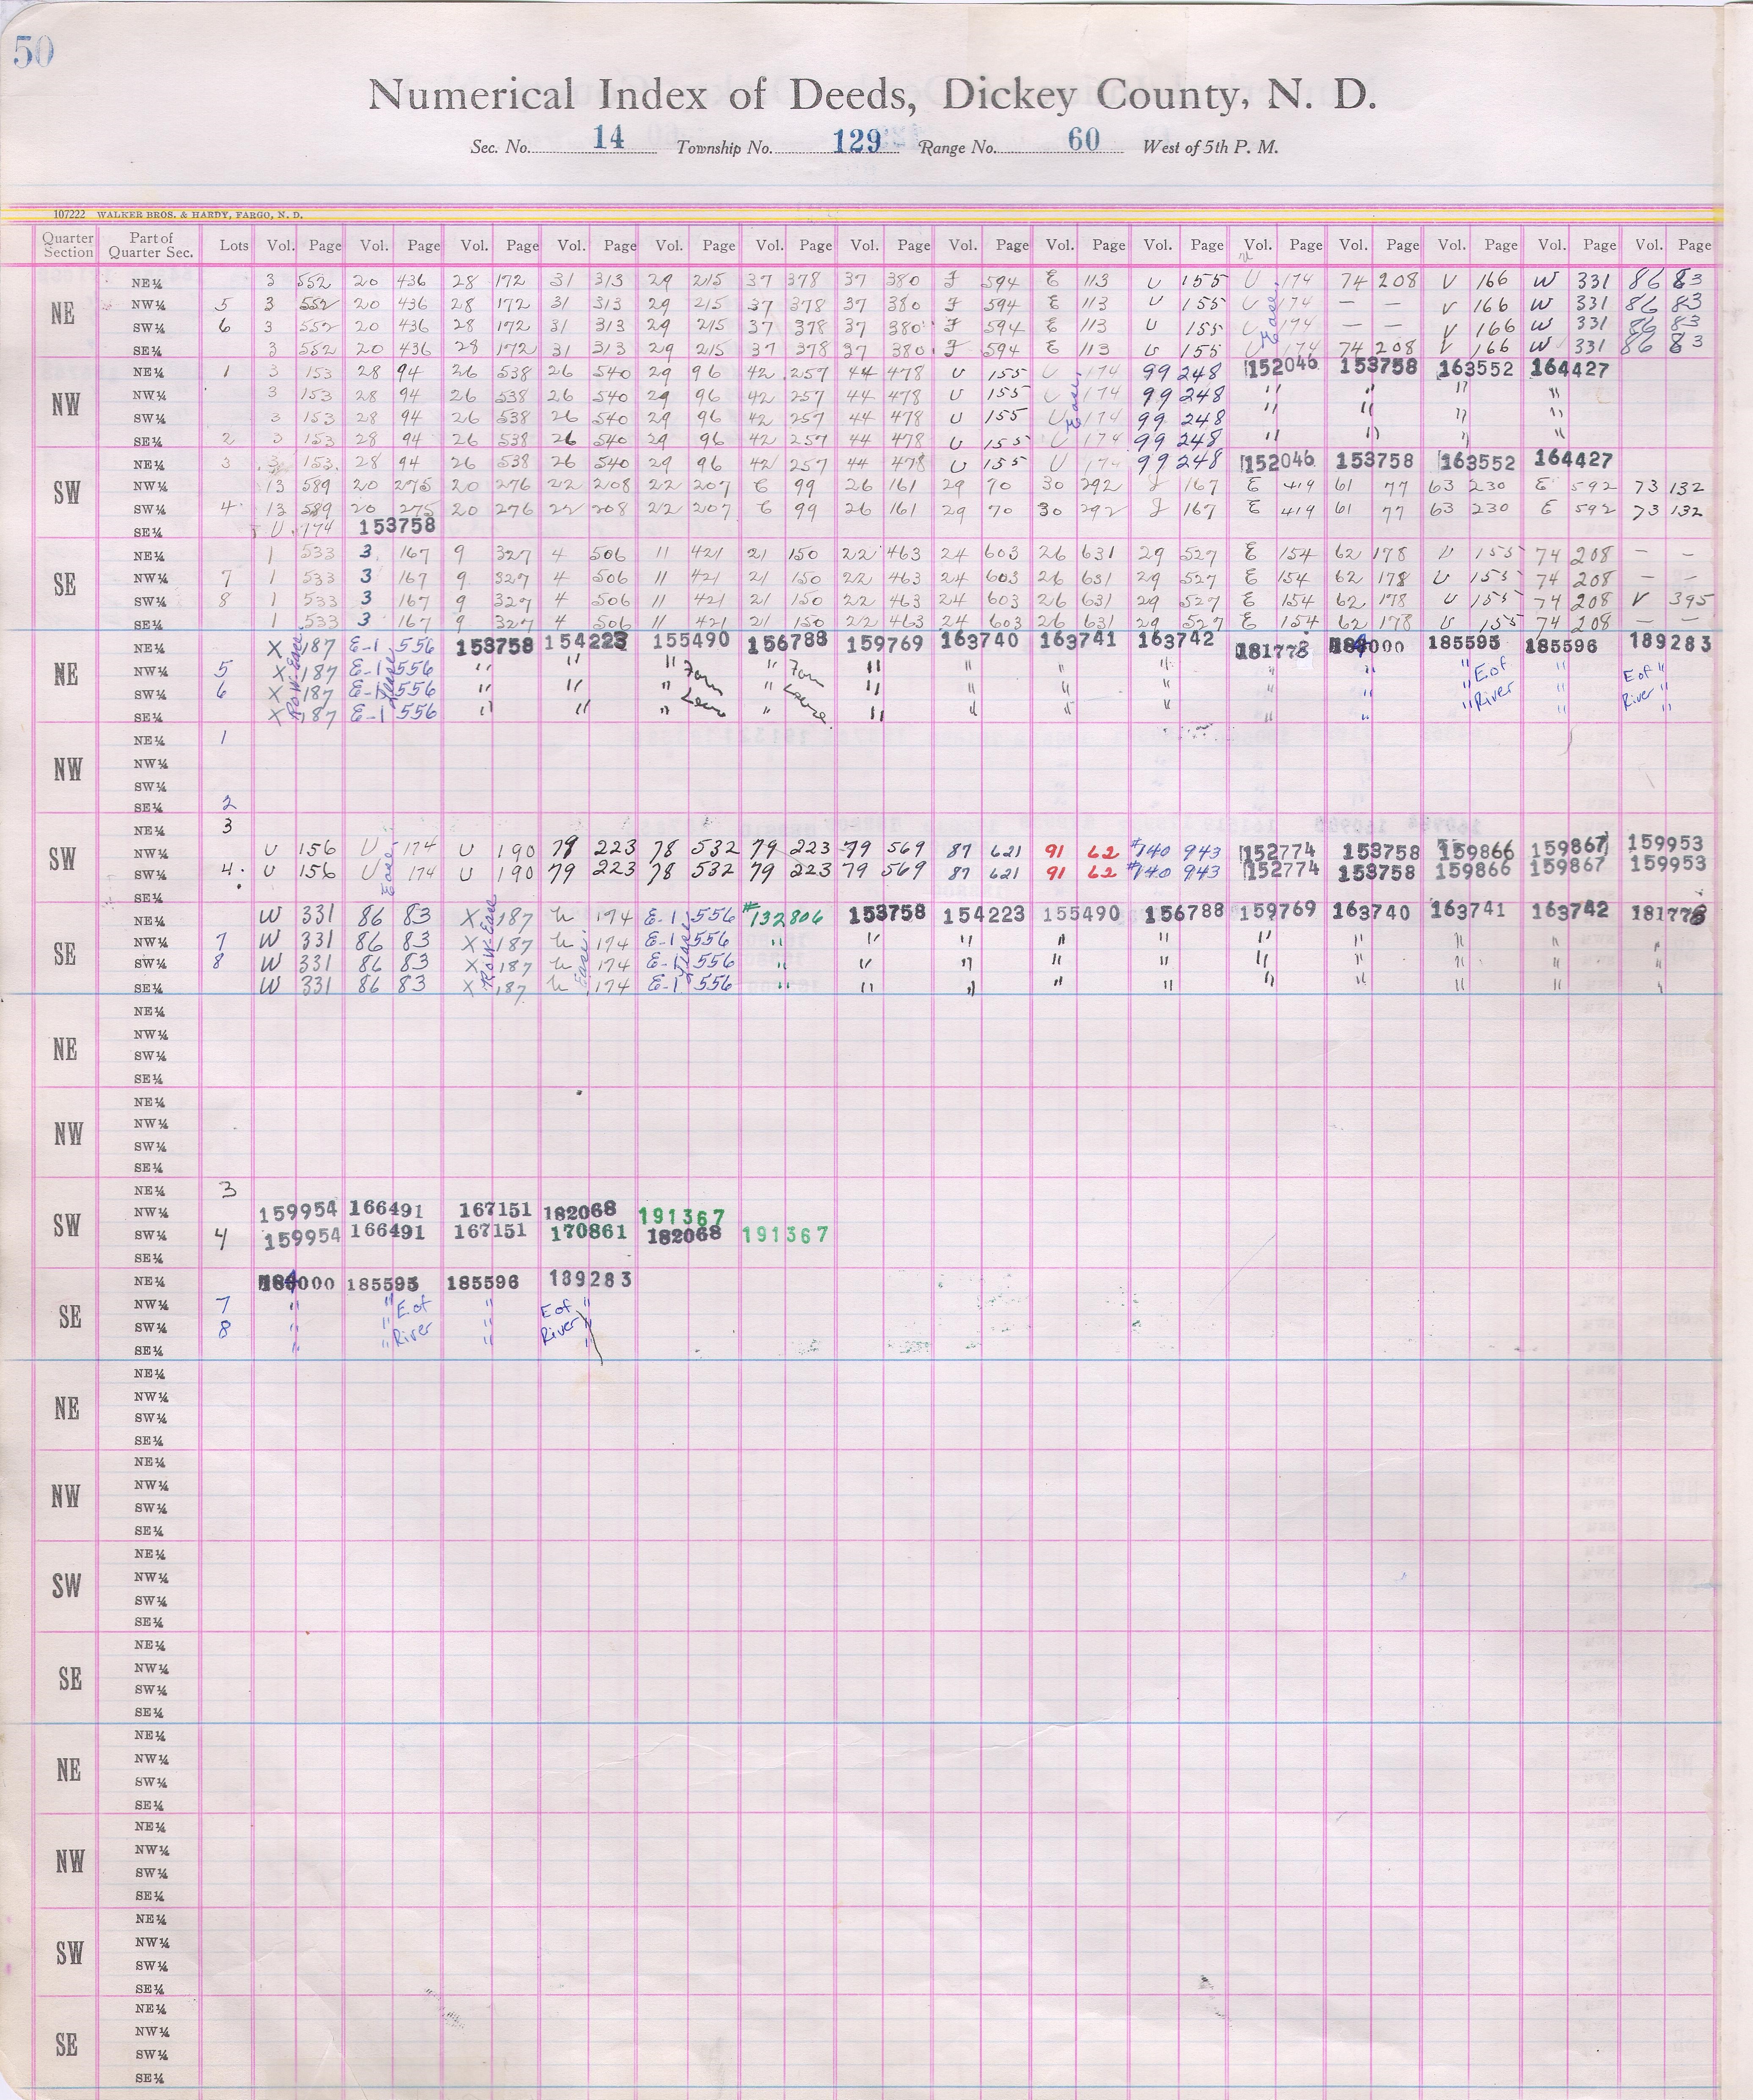 50
Numerical Index of Deeds, Dickey County, N. D.
Sec. No. 14 Township No. 129 Range No. 60 West of 5th P. M.
107222 WALKER BROS. & HARDY, FARGO, N. D.
Quarter Section Part of Quarter Sec. Lots Vol. Page Vol. Page Vol. Page Vol. Page Vol. Page Vol. Page Vol. Page Vol. Page Vol. Page Vol. Page Vol. Page Vol. Page Vol. Page Vol. Page Vol. Page
NE
NE¼ 3 552 20 436 28 172 31 313 29 215 37 378 37 380 F 594 E 113 U 155 U 174 74 208 V 166 W 331 86 83
NW¼ 5 3 552 20 436 28 172 31 313 29 215 37 378 37 380 F 594 E 113 U 155 U Ease. 174 — — V 166 W 331 86 83
SW¼ 6 3 552 20 436 28 172 31 313 29 215 37 378 37 380 F 594 E 113 U 155 U 174 — — V 166 W 331 86 83
SE¼ 3 552 20 436 28 172 31 313 29 215 37 378 37 380 F 594 E 113 U 155 U 174 74 208 V 166 W 331 86 83
NW
NE¼ 1 3 153 28 94 26 538 26 540 29 96 42 257 44 478 U 155 U 174 99 248 152046 153758 163552 164427
NW¼ 3 153 28 94 26 538 26 540 29 96 42 257 44 478 U 155 U Ease. 174 99 248 " " " "
SW¼ 3 153 28 94 26 538 26 540 29 96 42 257 44 478 U 155 U 174 99 248 " " " "
SE¼ 2 3 153 28 94 26 538 26 540 29 96 42 257 44 478 U 155 U 174 99 248 " " " "
SW
NE¼ 3 3 153 28 94 26 538 26 540 29 96 42 257 44 478 U 155 U 174 99 248 152046 153758 163552 164427
NW¼ 13 589 20 275 20 276 22 208 22 207 E 99 26 161 29 70 30 292 J 167 E 419 61 77 63 230 E 592 73 132
SW¼ 4 13 589 20 275 20 276 22 208 22 207 E 99 26 161 29 70 30 292 J 167 E 419 61 77 63 230 E 592 73 132
SE¼ U 174 153758
SE
NE¼ 1 533 3 167 9 327 4 506 11 421 21 150 22 463 24 603 26 631 29 527 E 154 62 178 U 155 74 208 — —
NW¼ 7 1 533 3 167 9 327 4 506 11 421 21 150 22 463 24 603 26 631 29 527 E 154 62 178 U 155 74 208 — —
SW¼ 8 1 533 3 167 9 327 4 506 11 421 21 150 22 463 24 603 26 631 29 527 E 154 62 178 U 155 74 208 V 395
SE¼ 1 533 3 167 9 327 4 506 11 421 21 150 22 463 24 603 26 631 29 527 E 154 62 178 U 155 74 208 — —
NE
NE¼ X 187 E-1 556 153758 154223 155490 156788 159769 163740 163741 163742 181778 184000 185595 185596 189283
NW¼ 5 X Row Ease. 187 E-1 Lease 556 " " " " " " " " " " " E of " E of "
SW¼ 6 X 187 E-1 556 " " " " " " " " " " " River " River "
SE¼ X 187 E-1 556 " " " " " " " " " " " " "
NW
NE¼ 1
NW¼
SW¼
SE¼ 2
SW
NE¼ 3
NW¼ U 156 U 174 U 190 79 223 78 532 79 223 79 569 87 621 91 62 #140 943 152774 153758 159866 159867 159953
SW¼ 4 U 156 U Ease. 174 U 190 79 223 78 532 79 223 79 569 87 621 91 62 #140 943 152774 153758 159866 159867 159953
SE¼
SE
NE¼ W 331 86 83 X 187 U 174 E-1 556 #132806 153758 154223 155490 156788 159769 163740 163741 163742 181778
NW¼ 7 W 331 86 83 X Row Ease 187 U Ease. 174 E-1 Lease 556 " " " " " " " " " "
SW¼ 8 W 331 86 83 X 187 U 174 E-1 556 " " " " " " " " " "
SE¼ W 331 86 83 X 187 U 174 E-1 556 " " " " " " " " " "
NE
NE¼
NW¼
SW¼
SE¼
NW
NE¼
NW¼
SW¼
SE¼
SW
NE¼ 3
NW¼ 159954 166491 167151 182068 191367
SW¼ 4 159954 166491 167151 170861 182068 191367
SE¼
SE
NE¼ 184000 185595 185596 189283
NW¼ 7 " " E of " E of "
SW¼ 8 " " River " River "
SE¼ " " " "
NE
NE¼
NW¼
SW¼
SE¼
NW
NE¼
NW¼
SW¼
SE¼
SW
NE¼
NW¼
SW¼
SE¼
SE
NE¼
NW¼
SW¼
SE¼
NE
NE¼
NW¼
SW¼
SE¼
NW
NE¼
NW¼
SW¼
SE¼
SW
NE¼
NW¼
SW¼
SE¼
SE
NE¼
NW¼
SW¼
SE¼